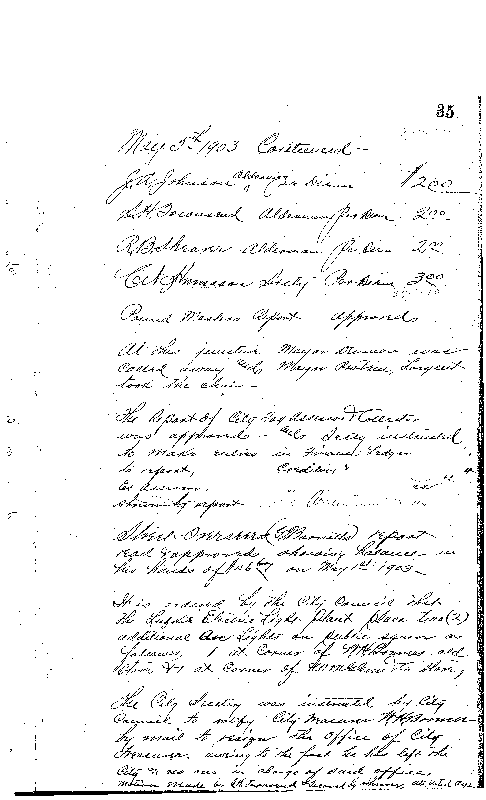 35
May 5th 1903 Continued -
J. A. Johnson Alderman Per Diem $2 00
L. H. Townsend Alderman Per Diem 2 00
R. B. Shearer Alderman Per Diem 2 00
C. N. Humason Secty Per Diem 3 00
Pound Masters Report approved
At this juncture Mayor Denman was
called away & Mayor Protem, Largent
took the chair -
The Report of City Tax Assessor & Collector
was approved - Secty instructed
to make entries in Finance Ledger
report,
as shown by report
Street Overseer report
read & approved, showing balance in
his hands of on May 1st 1903 -
It is ordered by the City Council that
the Lufkin Electric Light Plant place two (2)
additional Arc Lights on public square as
follows, 1 at Corner of W. H. Bonner old
Store & 1 at Corner of Store,
The City Secty was instructed by City
Council to notify City Treasurer W. H. Bonner
by mail to resign the office of City
Treasurer. owing to the fact he has left the
City & no one in charge of said office.
motion made by Townsend Second by Shearer,